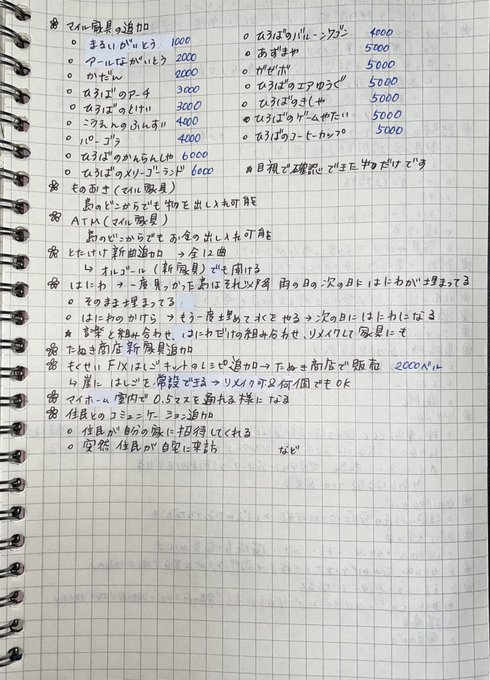 ❀ マイル家具の追加
○ まるいがいとう 1000
○ アールながいとう 2000
○ かだん 2000
○ ひろばのアーチ 3000
○ ひろばのとけい 3000
○ こうえんのふんすい 4000
○ パーゴラ 4000
○ ひろばのかんらんしゃ 6000
○ ひろばのメリーゴーランド 6000
○ ひろばのバルーンワゴン 4000
○ あずまや 5000
○ ガゼボ 5000
○ ひろばのエアゆうぐ 5000
○ ひろばのきしゃ 5000
○ ひろばのゲームやたい 5000
○ ひろばのコーヒーカップ 5000
★目視で確認できた物だけです
❀ ものおき(マイル家具)
島のどこからでも物を出し入れ可能
❀ ATM(マイル家具)
島のどこからでもお金の出し入れ可能
❀ とたけけ新曲追加 →全12曲
↳ オルゴール(新家具)でも聞ける
❀ はにわ →一度見つかった島はそれ以降 雨の日の次の日にはにわが埋まってる
○ そのまま埋まってる
○ はにわのかけら →もう一度埋めて水をやる→次の日にはにわになる
★ 音楽と組み合わせ、はにわだけの組み合わせ、リメイクして家具にも
❀ たぬき商店新家具追加
❀ もくせいFIXはしごキットのレシピ追加→たぬき商店で販売 2000ベル
↳ 崖にはしごを常設できる→リメイク可&何個でもOK
❀ マイホーム室内で0.5マスを通れる様になる
❀ 住民とのコミュニケーション追加
○ 住民が自分の家に招待してくれる
○ 突然住民が自宅に来訪 など